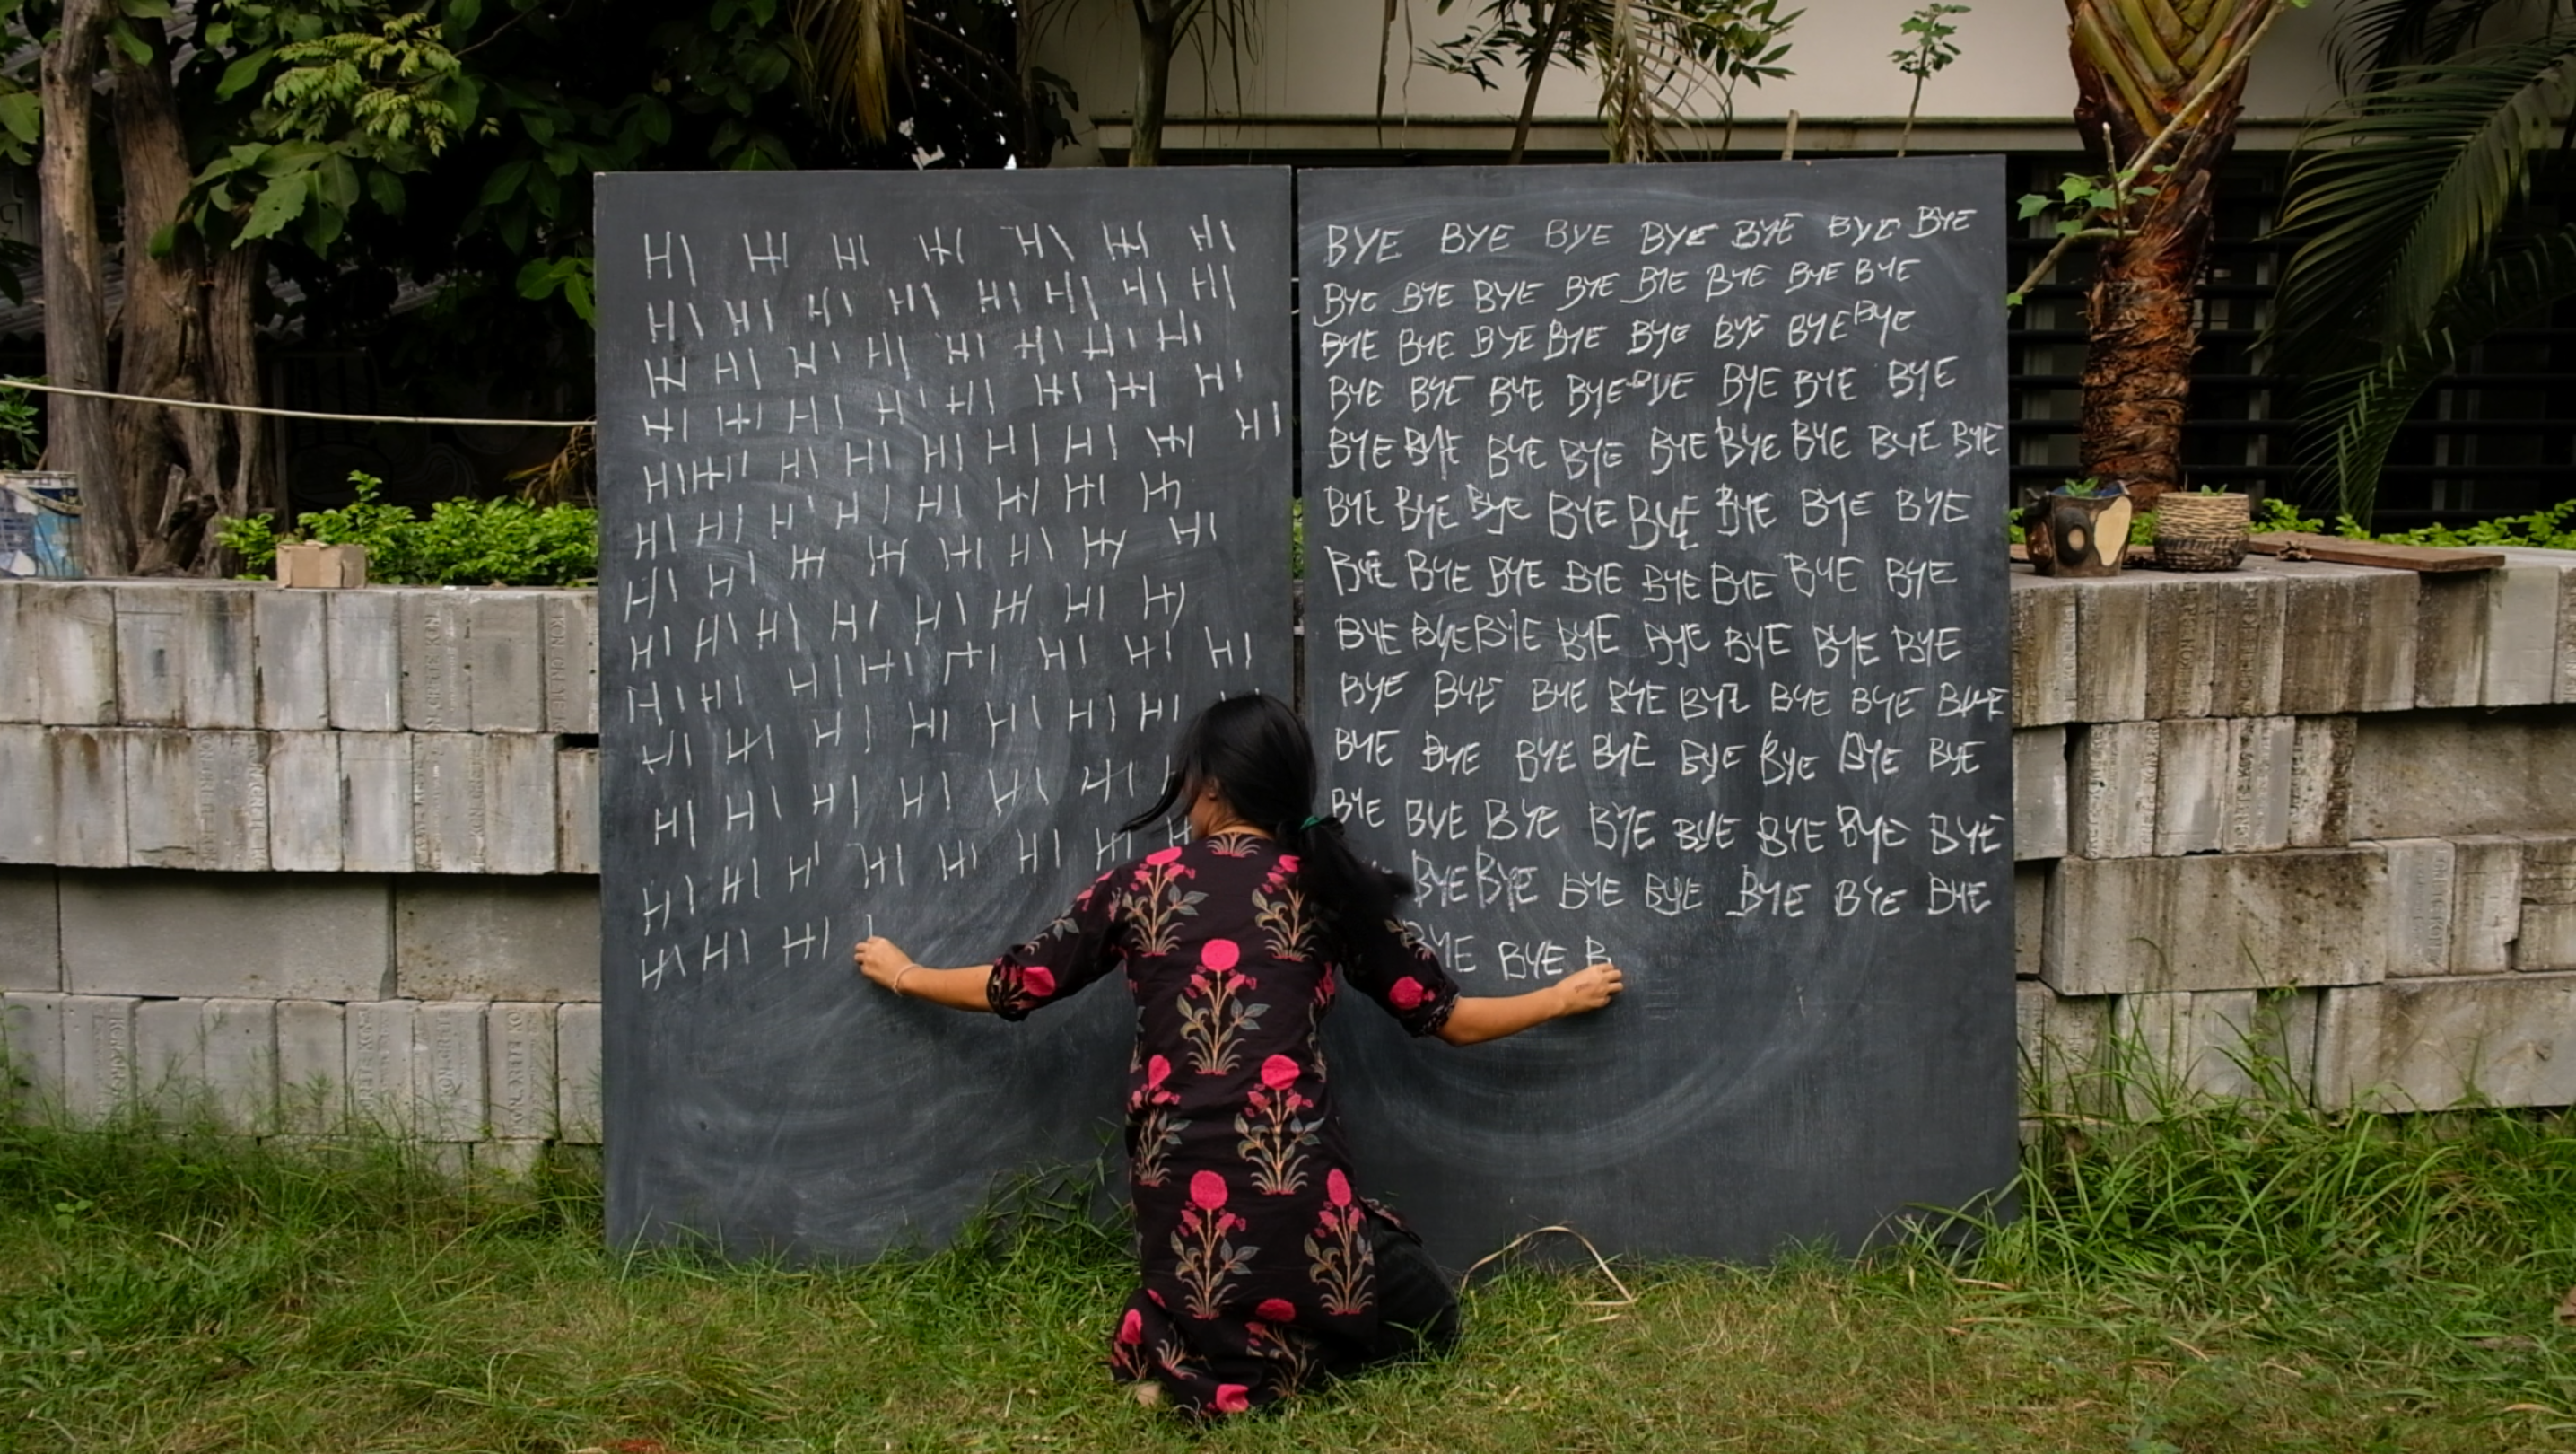 HI HI HI HI HI HI HI
HI HI HI HI HI HI HI HI
HI HI HI HI HI HI HI HI
HI HI HI HI HI HI HI HI
HI HI HI HI HI HI HI HI HI
HI HI HI HI HI HI HI HI
HI HI HI HI HI HI HI HI
HI HI HI HI HI HI HI HI
HI HI HI HI HI HI HI HI
HI HI HI HI HI HI HI
HI HI HI HI HI HI
HI HI HI HI HI HI HI
HI HI HI I
BYE BYE BYE BYE BYE BYE BYE
BYE BYE BYE BYE BYE BYE BYE BYE
BYE BYE BYE BYE BYE BYE BYE BYE
BYE BYE BYE BYE BYE BYE BYE BYE
BYE BYE BYE BYE BYE BYE BYE BYE BYE
BYE BYE BYE BYE BYE BYE BYE BYE
BYE BYE BYE BYE BYE BYE BYE BYE
BYE BYE BYE BYE BYE BYE BYE BYE
BYE BYE BYE BYE BYE BYE BYE BYE
BYE BYE BYE BYE BYE BYE BYE BYE
BYE BYE BYE BYE BYE BYE BYE BYE
BYE BYE BYE BYE BYE BYE BYE
BYE BYE B